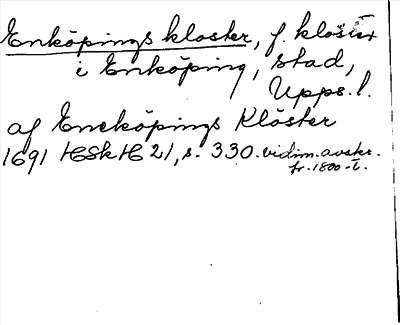 Enköpings kloster, f. kloster
i Enköping, stad,
Upps. l.
af Eneköpings Klöster
1691 HSH H 21, s. 330. vidim. avskr.
fr. 1800-t.